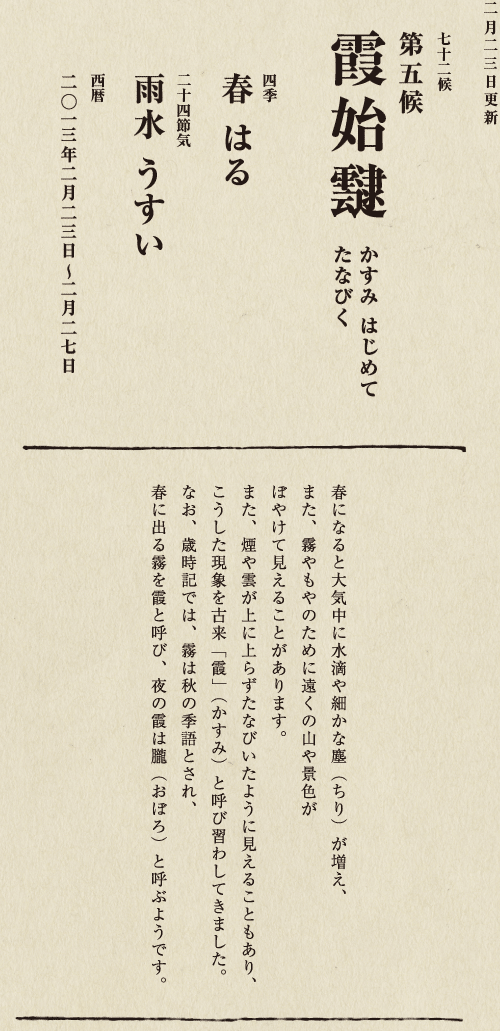 二月二三日更新
七十二候
第五候
霞始靆
かすみ はじめて
たなびく
四季
春 はる
二十四節気
雨水 うすい
西暦
二〇一三年二月二三日〜二月二七日
春になると大気中に水滴や細かな塵（ちり）が増え、
また、霧やもやのために遠くの山や景色が
ぼやけて見えることがあります。
また、煙や雲が上に上らずたなびいたように見えることもあり、
こうした現象を古来「霞」（かすみ）と呼び習わしてきました。
なお、歳時記では、霧は秋の季語とされ、
春に出る霧を霞と呼び、夜の霞は朧（おぼろ）と呼ぶようです。